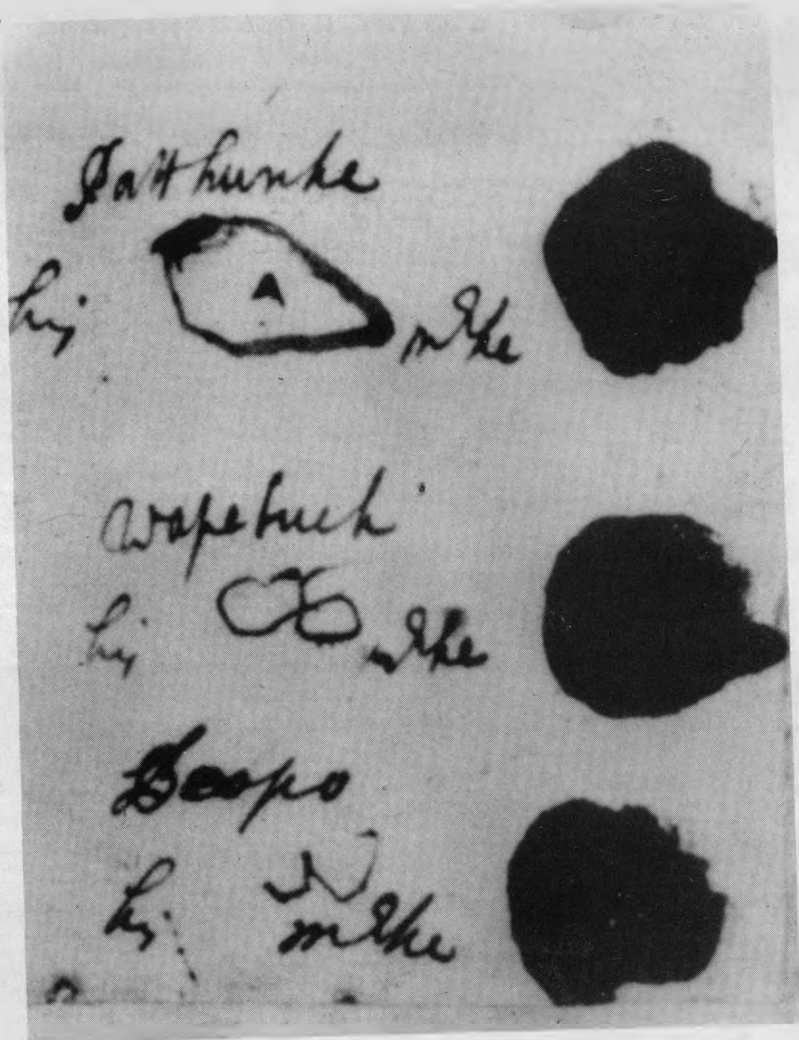 Patthunke
his mrke
Wapetuck
his mrke
his mrke